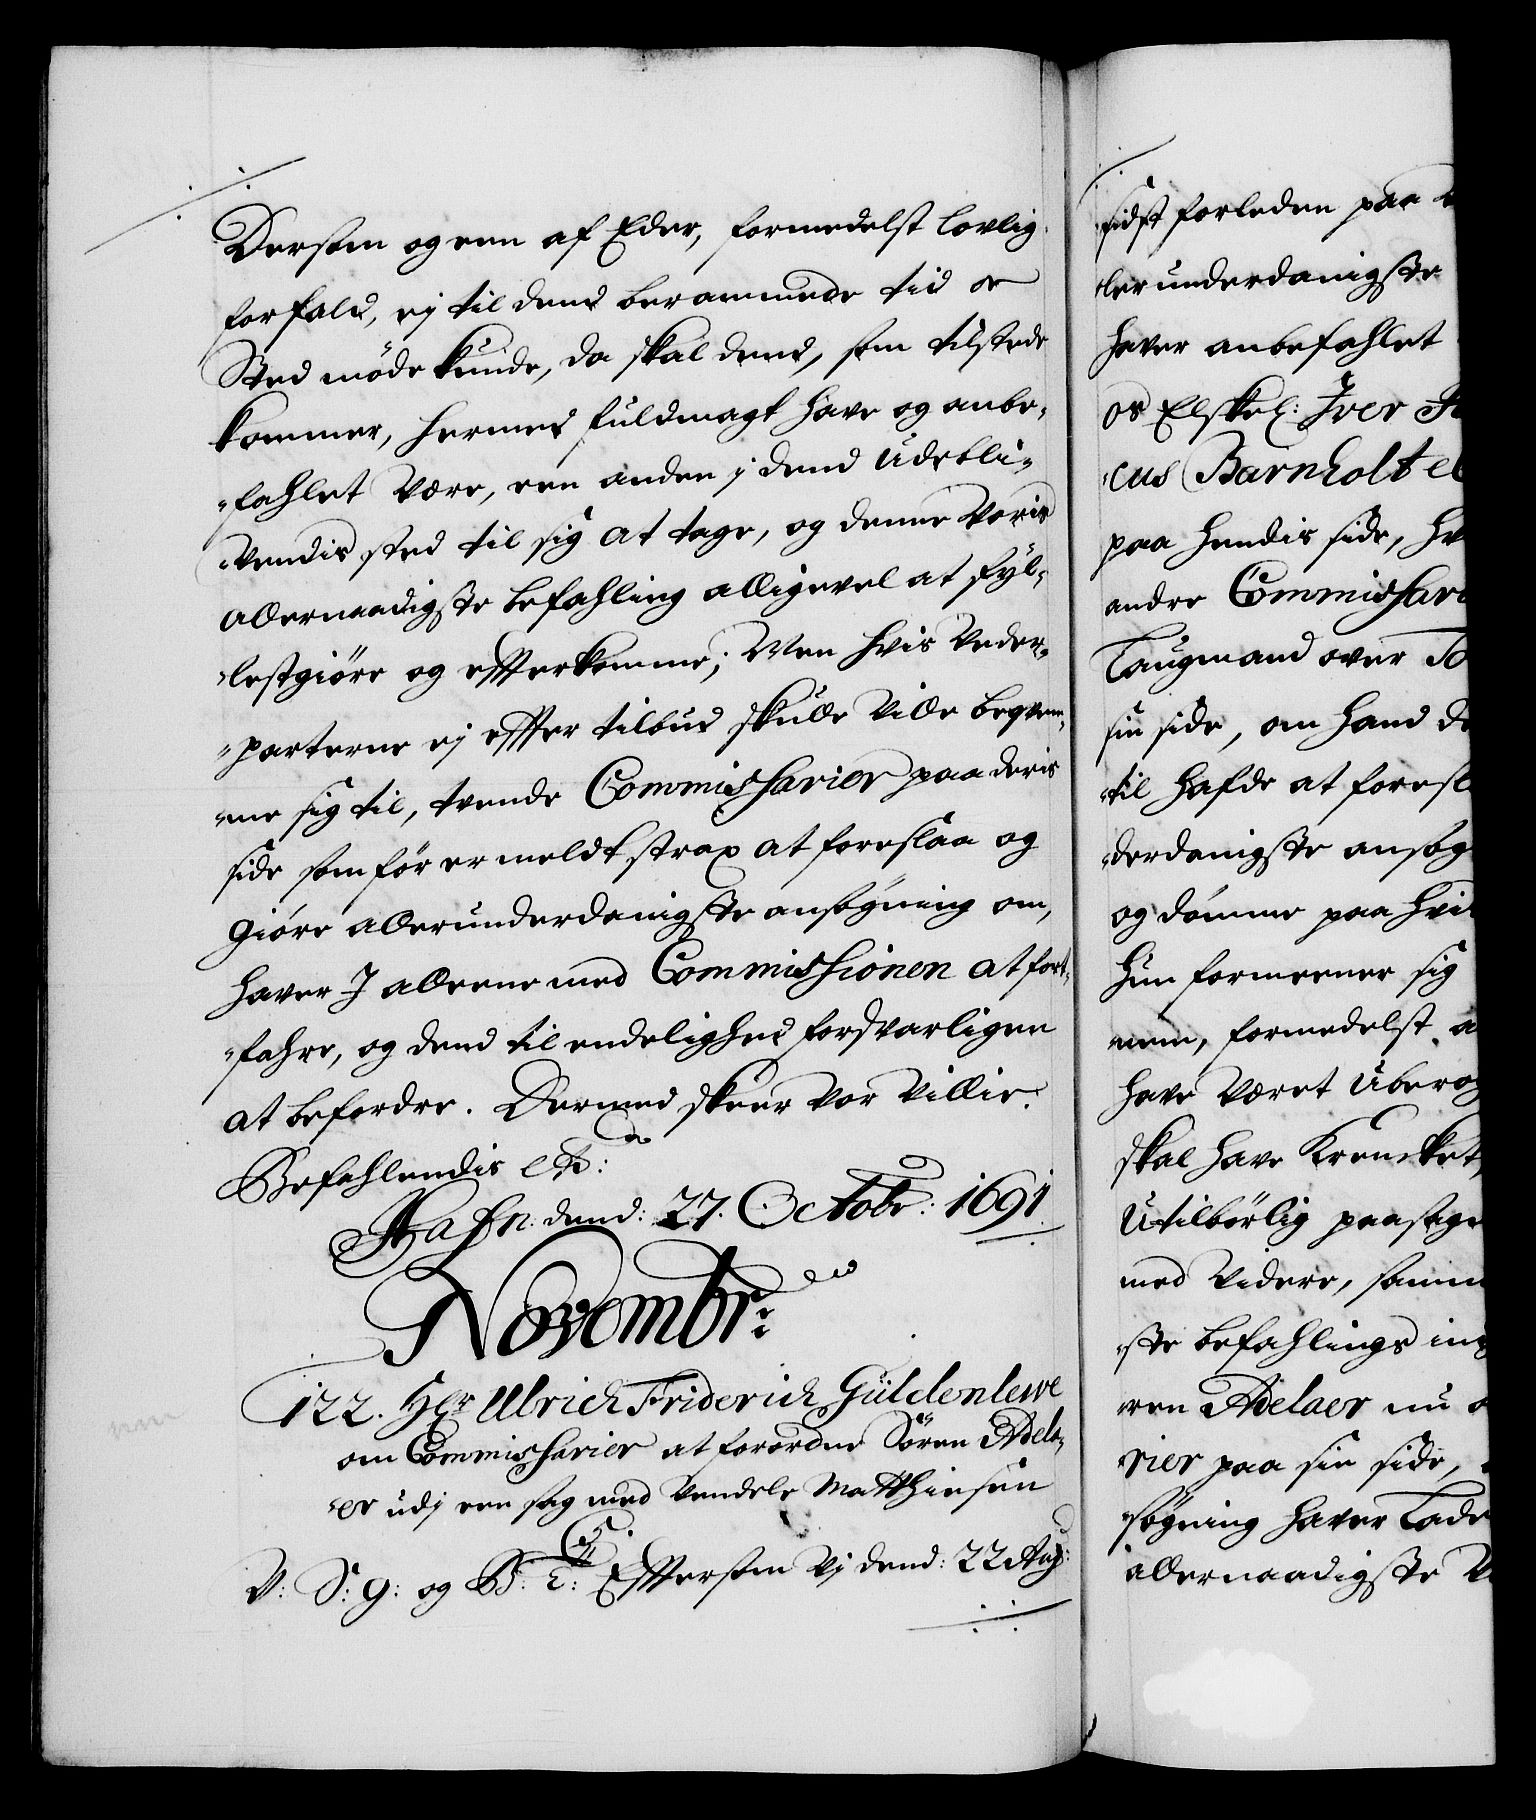 Dersom og een af Eder, formedelst lovlig
forfald, ej til dend berammede tid oc
Sted møde kunde, da skal dend, som tilstede
kommer, hermed fuldmagt have og anbe-
-fahlet være, een anden j dend udebli-
-vendis sted til sig at tage, og denne voris
allernaadigste befahling alligevel at fyl-
-lestgiøre og efterkomme; Men hvis veder-
-parterne ej efter tilbud skulle ville beqvem-
-me sig til, tvende Commissarier paa deris
side som før er meldt strax at foreslaa og
giøre allerunderdanigste ansøgning om,
haver I alleene med Commissionen at fort-
-fahre, og dend til endelighed forsvarligen
at befordre. Dermed skeer vor villie.
Befahlendis etc:
Hafn: dend: 27. Octobr: 1691
Novembr:
122. Hr Ulrich Friderich Güldenlewe
om Commissarier at forordne Sören Adela-
-er udj een sag med Vendele Matthiesen
C5.
V: S: G: og B: T: Eftersom Vj dend: 22 Aug:
sidst forleden paa
-lerunderdanigste
haver anbefahlet
os Elskel: Iver
-cus Barnholt
paa hendis side,
andre Commissari
Laugmand over
sin side, om hand
-til hafde at foresl
-derdanigste ansøg
og dömme paa
hun formeener sig
-nem, formedelst
have været
skal have Krencket,
Utilbørlig
med videre,
-ste befahlings
-ren Adelaer nu
-rier paa sin side,
-søgning haver Lade
allernaadigste